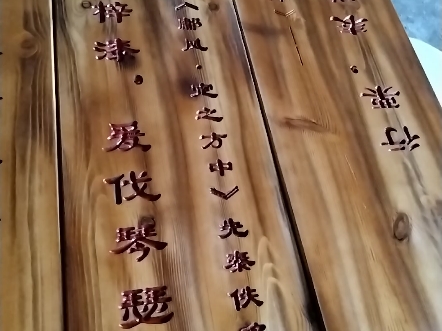 行
《鄘风·定之方中》先秦佚
梓漆。爰伐琴瑟